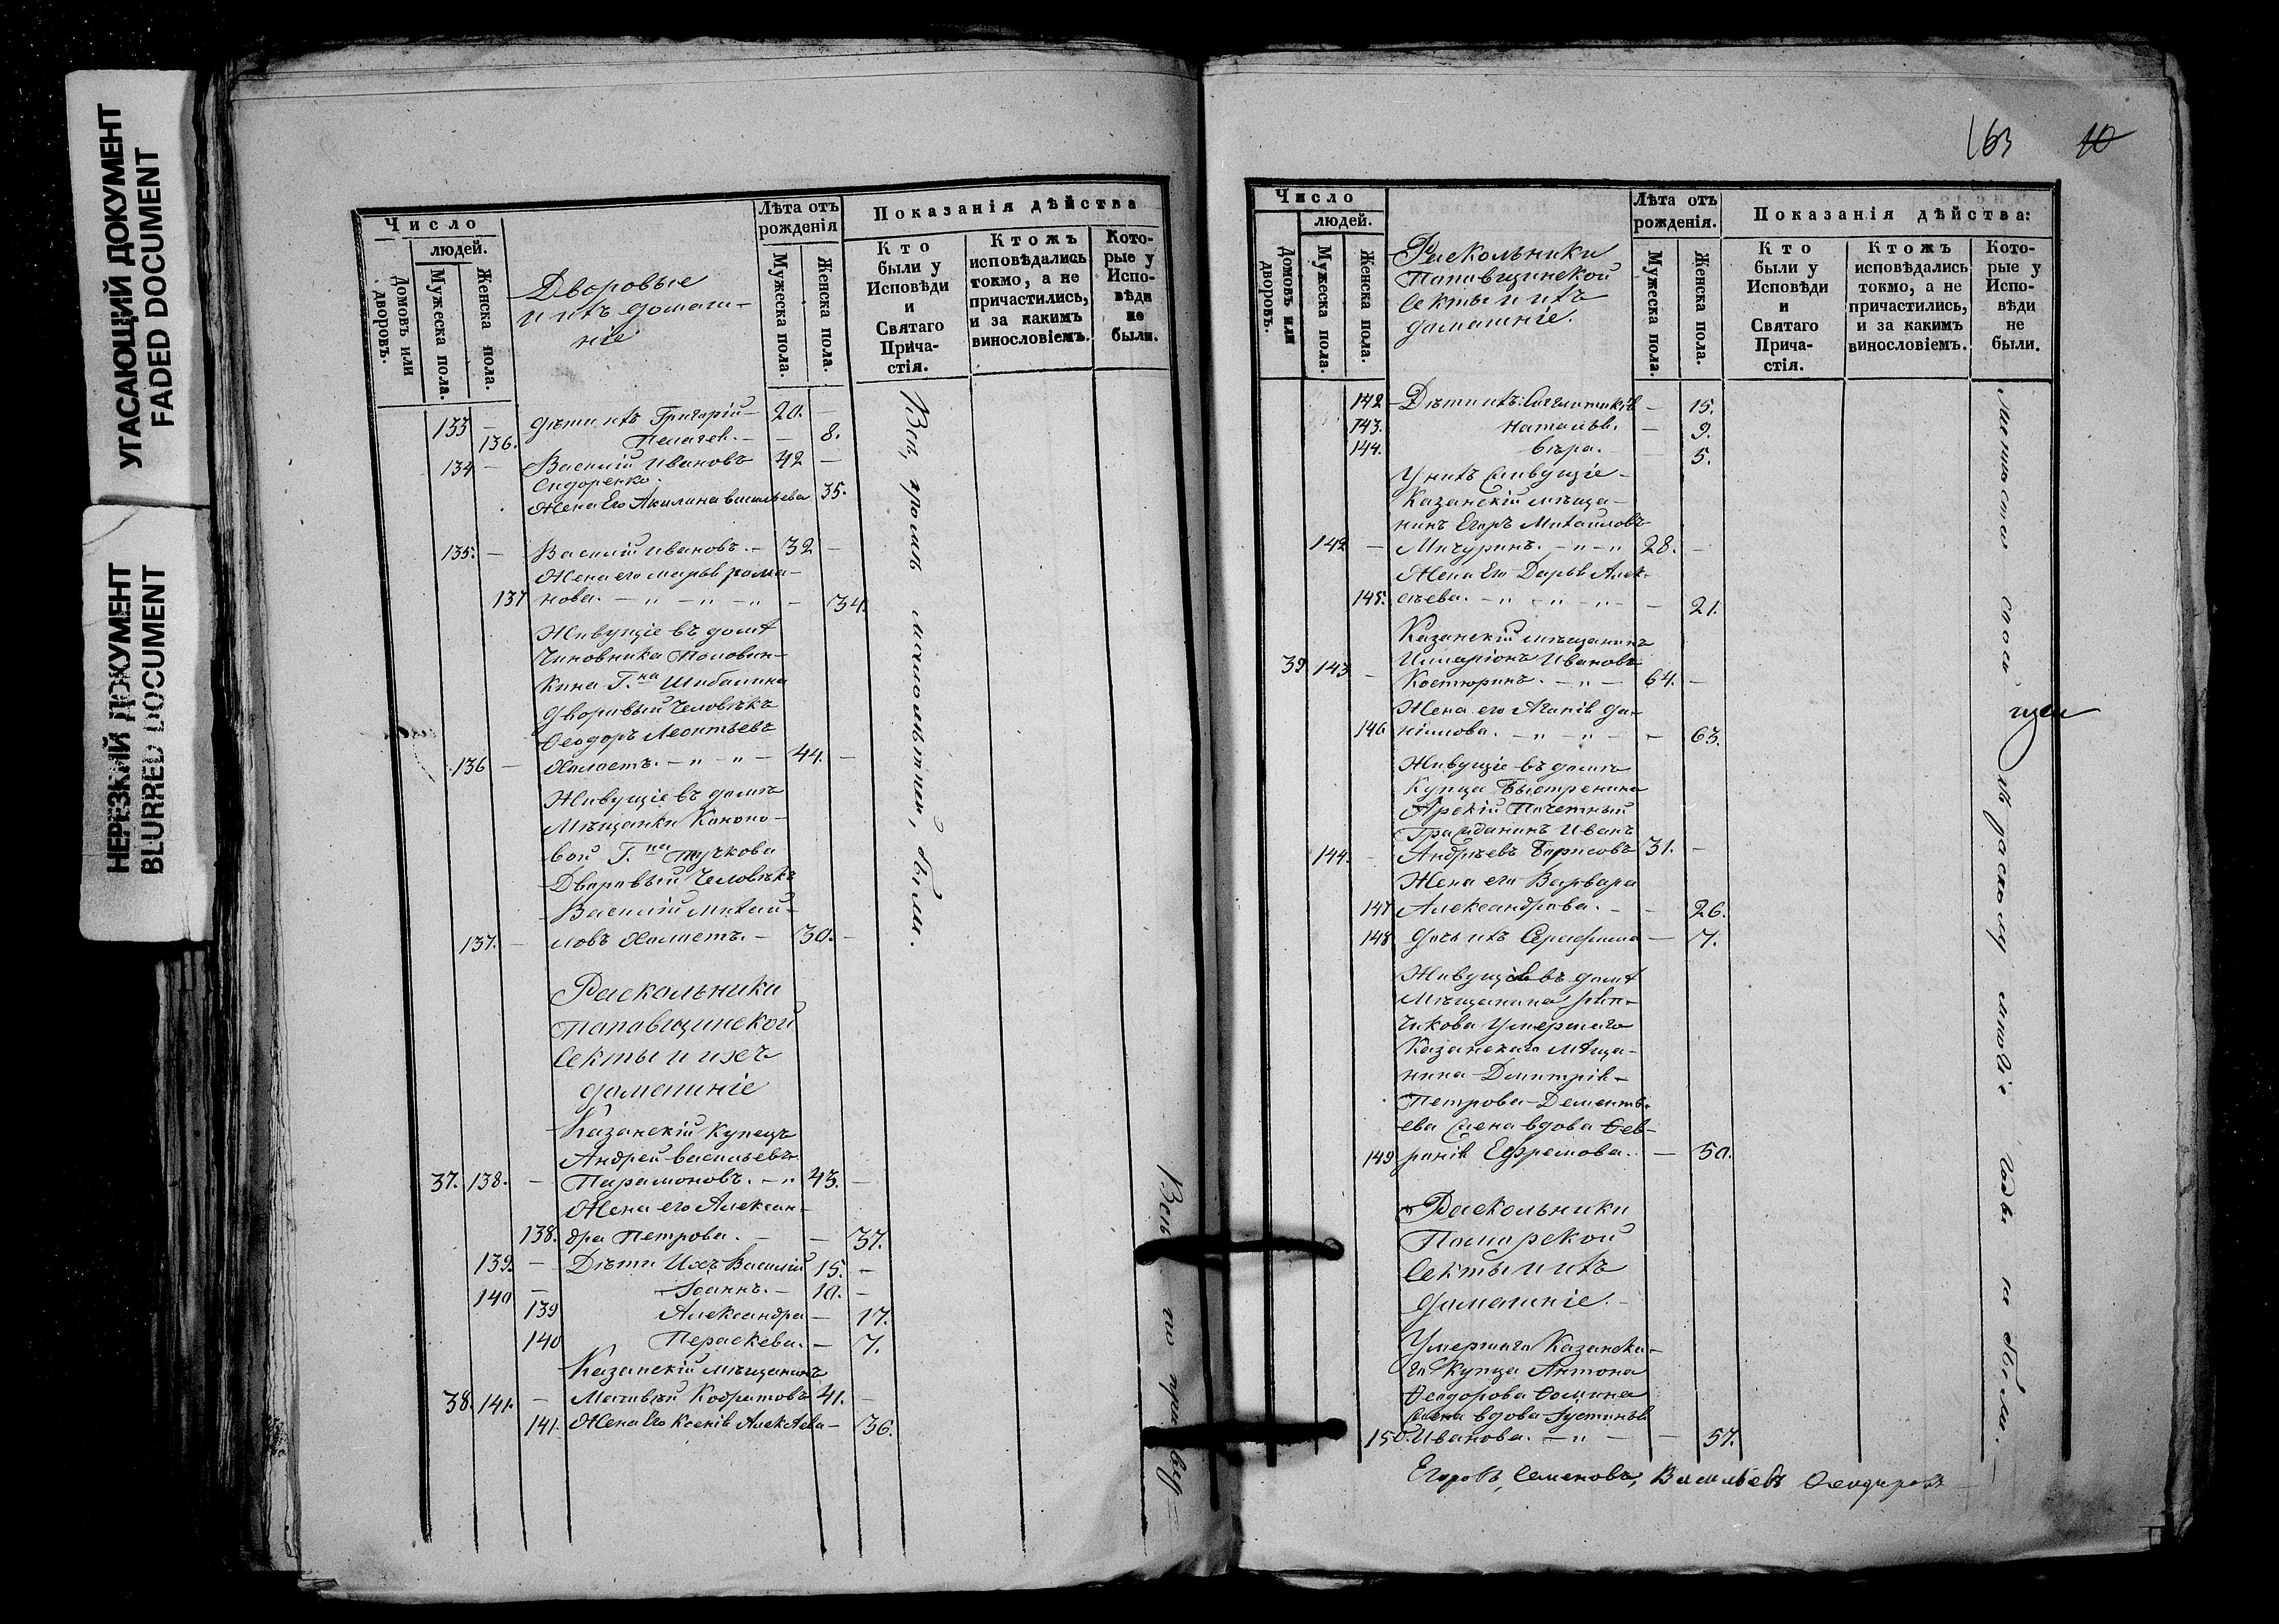 УГАСАЮЩИЙ ДОКУМЕНТ
FADED DOCUMENT
НЕРЕЗКИЙ ДОКУМЕНТ
BLURRED DOCUMENT
Число
людей.
Домовъ или дворовъ.
Мужеска пола.
Женска пола.
Дворовые
и ихъ домаш-
ніе
Лѣта отъ рожденія
Мужеска пола.
Женска пола.
Показанія дѣйства
Кто были у Исповѣди и Святаго Причастія.
Ктожъ исповѣдались токмо, а не причастились, и за какимъ винословіемъ.
Которые у Исповѣди не были.
133 — Дѣти ихъ Григорій — 20. —
136. Пелагея. — — 8.
134 — Василій Ивановъ 42 —
Сидоренко.
Жена Его Акилина Васильева 35.
135. — Василій Ивановъ. — 32 —
Жена его Марья Рома-
137 нова. — " — " — " — 34.
Живущіе въ домѣ
Чиновника Половин-
кина Г.на Шибалина
Дворовый Человѣкъ
Ѳеодоръ Леонтьевъ
136 — Холостъ. — " — " — 44. —
Живущіе въ домѣ
Мѣщанки Конono-
вой Г.на Тучкова
Дворовый Человѣкъ
Василій Михай-
137. — ловъ Холостъ. — 30. —
Всѣ, кромѣ малолѣтней, были.
Раскольники
Поповщинской
Секты и ихъ
домашніе
Казанскій Купецъ
Андрей Васильевъ
37. 138. — Парамоновъ. — " 43. —
Жена его Алексан-
138. дра Петрова. — — 37.
139. — Дѣти Ихъ Василій 15. —
140 — Іоаннъ. — 10. —
139 Александра — 17.
140 Параскева. — 7.
Казанскій мѣщанинъ
38. 141. — Матвѣй Кодратовъ 41. —
141. Жена Его Ксенія Алекѣева — 36.
163 10
Число
людей.
Домовъ или дворовъ.
Мужеска пола.
Женска пола.
Раскольники
Поповщинской
Секты и ихъ
домашніе.
Лѣта отъ рожденія.
Мужеска пола.
Женска пола.
Показанія дѣйства:
Кто были у Исповѣди и Святаго Причастія.
Ктожъ исповѣдались токмо, а не причастились, и за какимъ винословіемъ.
Которые у Исповѣди не были.
142 Дѣти ихъ: — 15.
143. Наталья. — 9.
144. Вѣра. — 5.
У нихъ Живущіе —
Казанскій мѣща-
нинъ Егоръ Михайловъ
142 — Мичуринъ. — " — " 28. —
Жена Его Дарья Алек-
145. сѣева. — " — " — " — 21.
Казанскій мѣщанинъ
Илларіонъ Ивановъ
39 143 — Костюринъ. — " — 64. —
Жена его Агапія Да-
146 нилова. — " — " — — 63.
Живущіе въ домѣ
Купца Быстренина
Арскій Почетный
Гражданинъ Иванъ
144. — Андрѣевъ Борисовъ 31. —
Жена его Варвара
147 Александрова. — — 26.
148 Дочь ихъ Серафима — 7.
Живущіе въ домѣ
Мѣщанина Рип-
чикова Умершаго
Казанскаго Мѣща-
нина Димитрія —
Петрова Дементь-
ева Жена вдова Ѳев-
149 ронія Ефремова. — 50.
Раскольники
Поморской
Секты и ихъ
домашніе. —
Умершаго Казанска-
го Купца Антона
Ѳеодорова Ѳомина
Жена вдова Іустинья
150. Иванова. — " — — 57.
Егоровъ, Семеновъ, Васильевъ